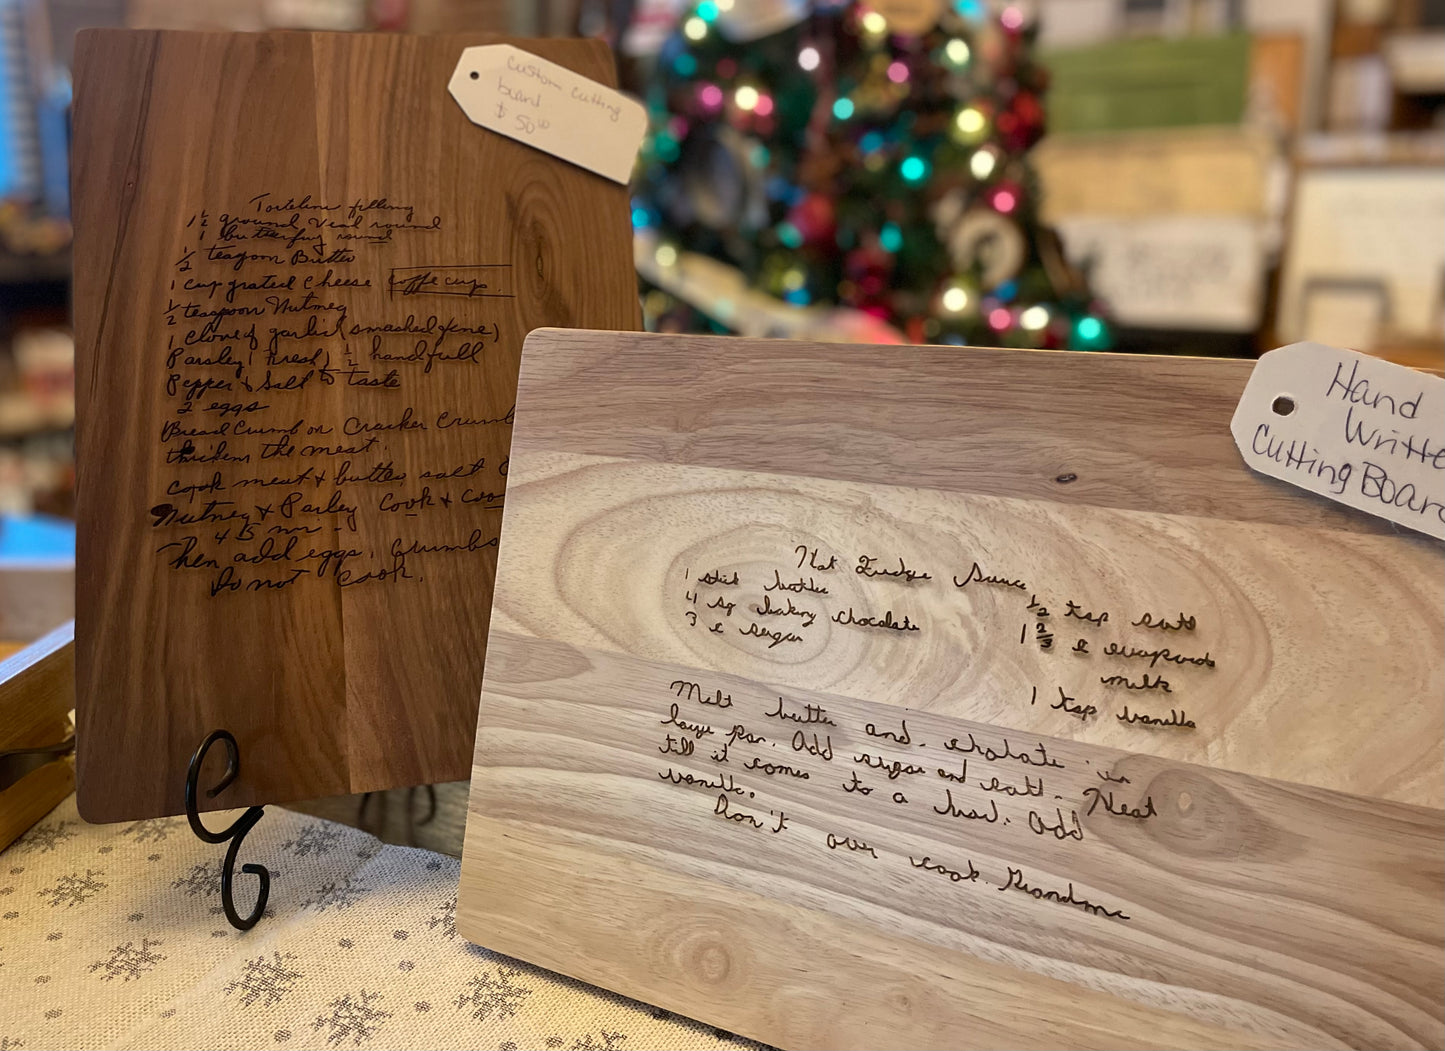 Custom Cutting
board
$ 50.00
Torteline filling
1 1/2 ground Veal round
1 butterfuy round
1/2 teaspoon Butter
1 cup grated cheese coffe cup.
1/2 teaspoon Nutmeg
1 clove of garlic (smashed fine)
Parsley (Fresh) 1/2 handfull
Pepper & Salt to taste
2 eggs
Bread Crumb or Cracker Crumb
thicken the meat.
cook meat & butter, salt
Nutmeg & Parley Cook & Coo
4 5 mi -
Then add eggs, Crumbs
Do not cook.
Hand
Writte
Cutting Board
Hot Fudge Sauce
1 stick butter
4 sq bakery chocolate
3 c sugar
1/2 tsp salt
1 2/3 c evaporate
milk
1 tsp vanilla
Melt butter and chocolate in
large pan. Add sugar and salt. Heat
till it comes to a boil. Add
vanilla.
Don't over cook. Grandma